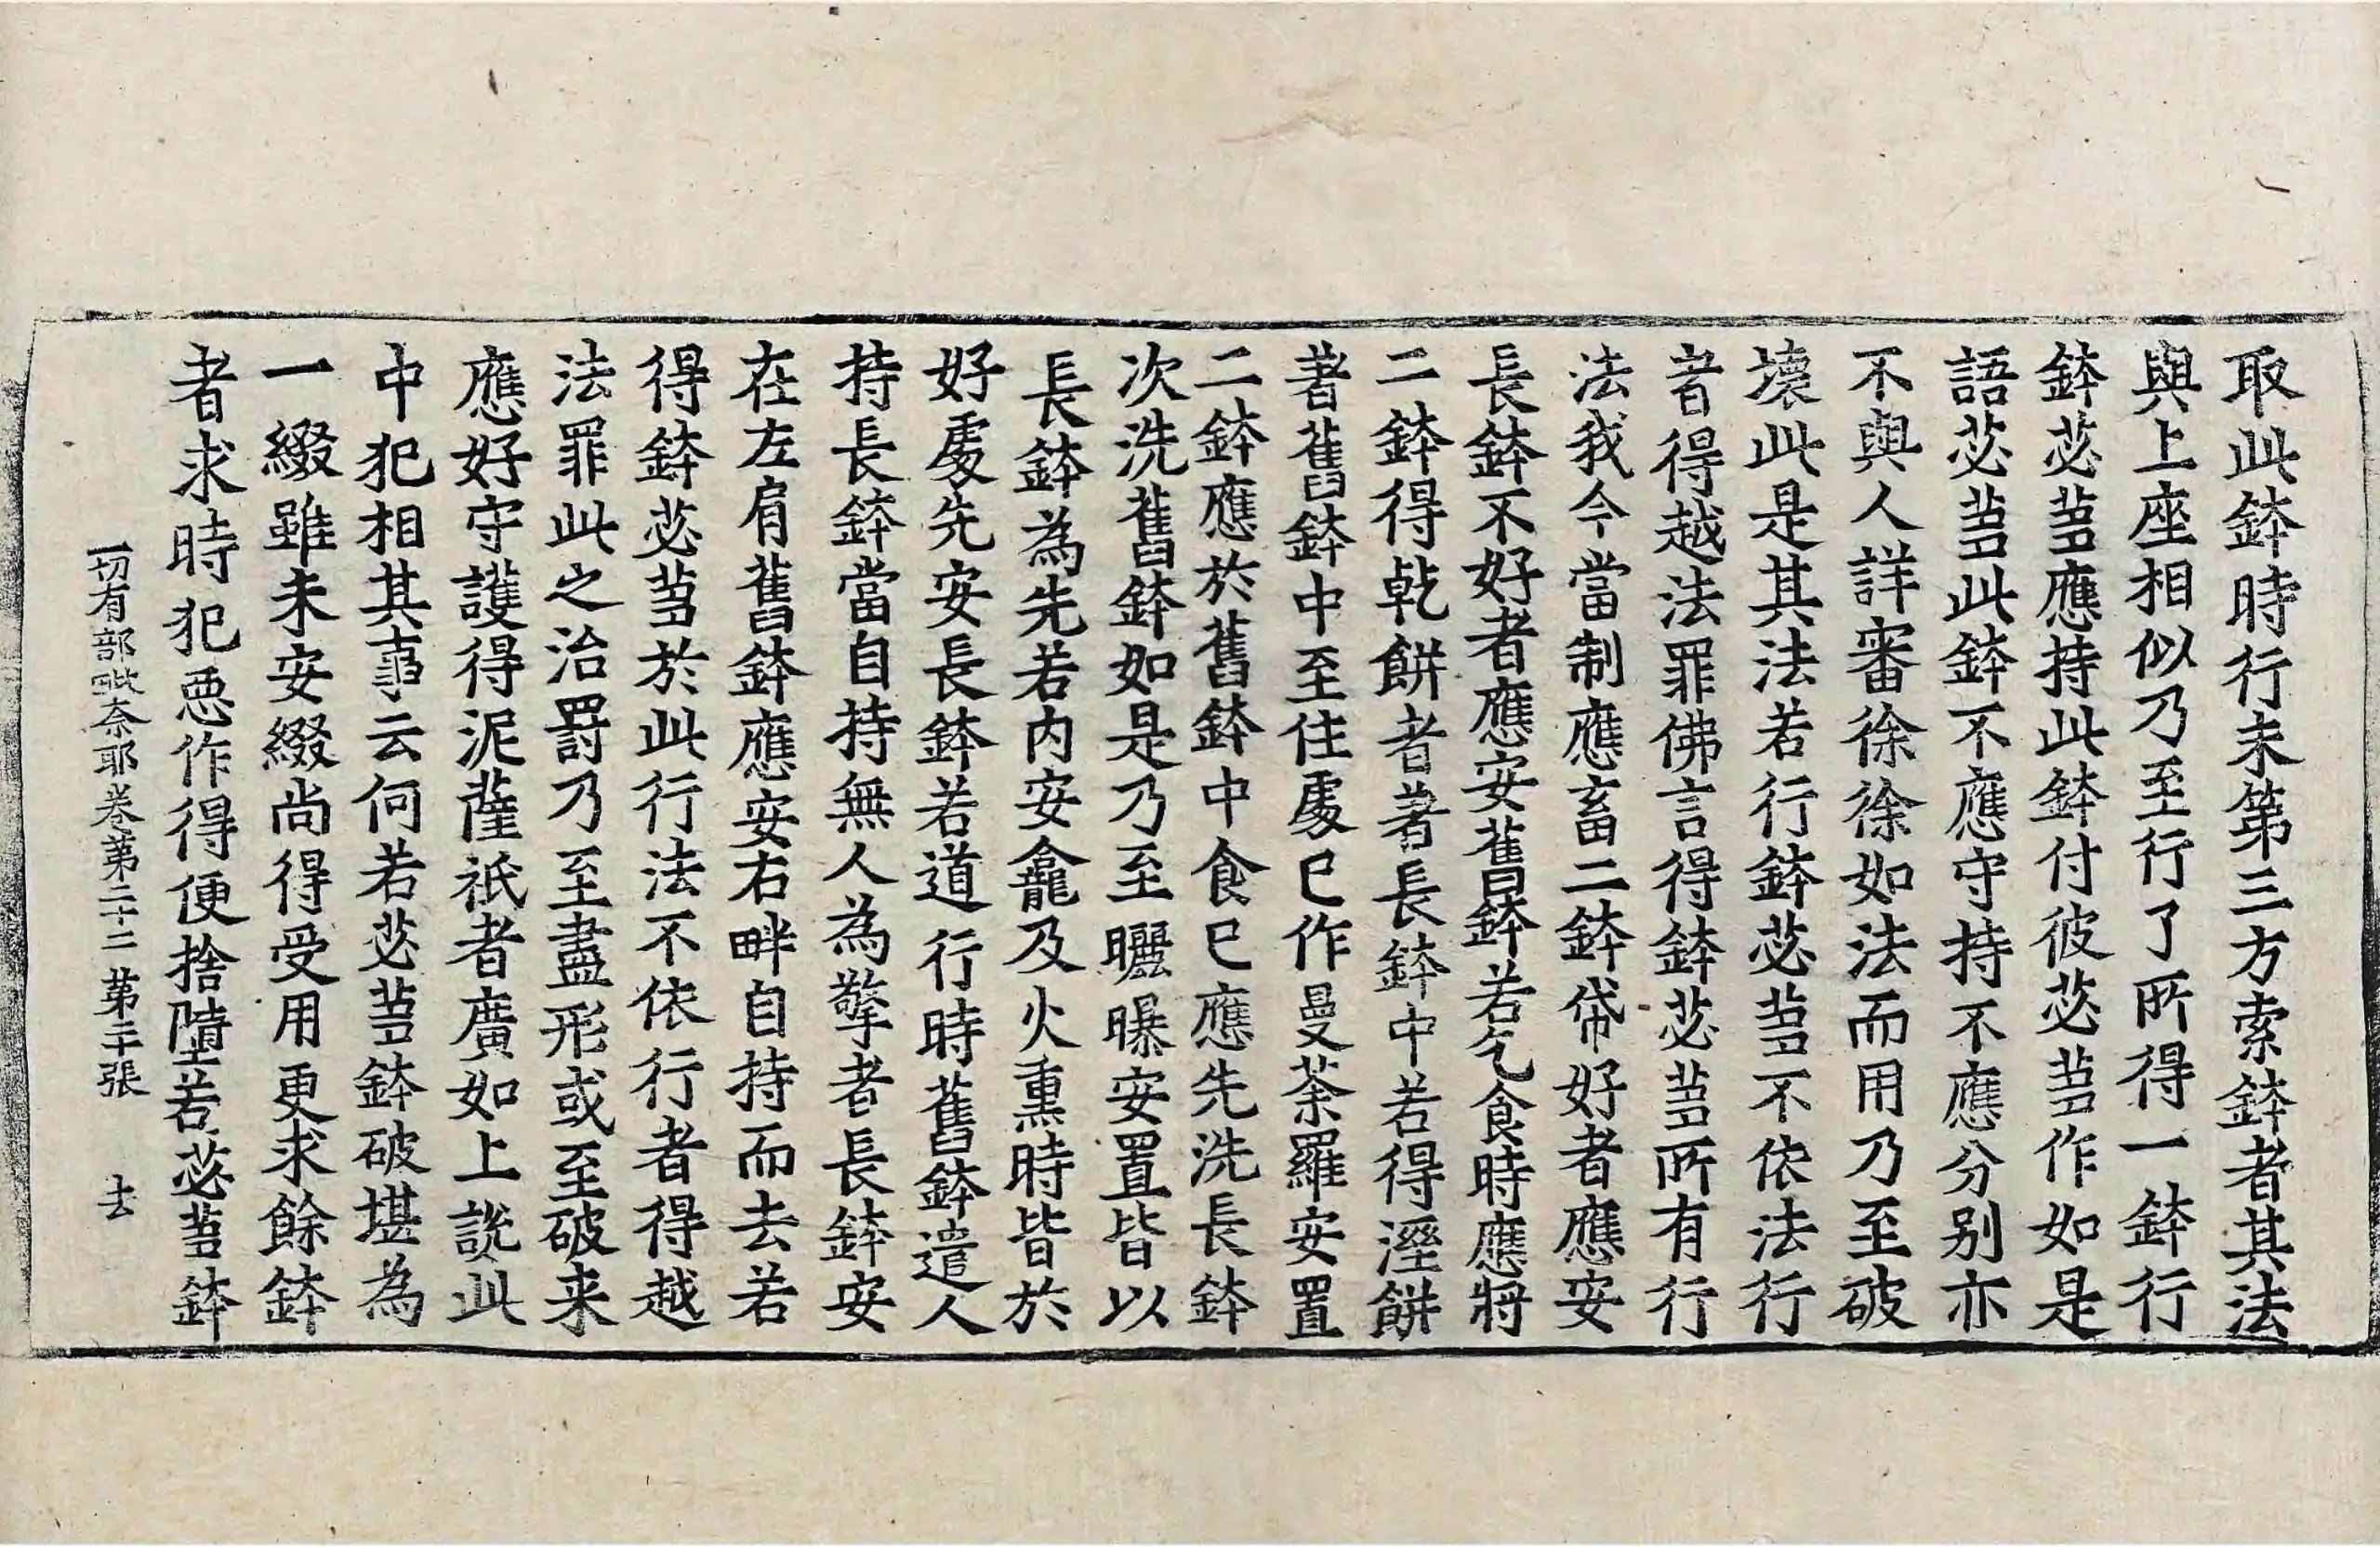 取此鉢時行末第三方索鉢者其法
與上座相似乃至行了所得一鉢行
鉢苾芻應持此鉢付彼苾芻作如是
語苾芻此鉢不應守持不應分别亦
不與人詳審徐徐如法而用乃至破
壞此是其法若行鉢苾芻不依法行
者得越法罪佛言得鉢苾芻所有行
法我今當制應畜二鉢帒好者應安
長鉢不好者應安舊鉢若乞食時應將
二鉢得乾餅者著長鉢中若得溼餅
著舊鉢中至住處已作曼荼羅安置
二鉢應於舊鉢中食已應先洗長鉢
次洗舊鉢如是乃至曬曝安置皆以
長鉢為先若内安龕及火熏時皆於
好處先安長鉢若道行時舊鉢遣人
持長鉢當自持無人為擎者長鉢安
在左肩舊鉢應安右畔自持而去若
得鉢苾芻於此行法不依行者得越
法罪此之治罸乃至盡形或至破来
應好守護得泥薩祇者廣如上説此
中犯相其事云何若苾芻鉢破堪為
一綴雖未安綴尚得受用更求餘鉢
者求時犯惡作得便捨墮若苾芻鉢
一切有部毗奈耶卷第二十二 第二十張 去